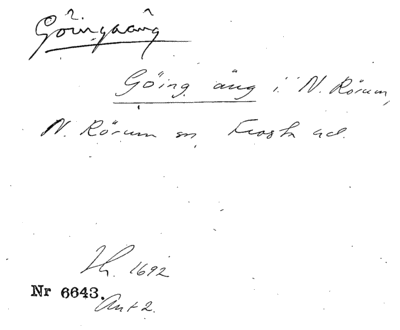 Göingaäng
Göing äng i N. Rörum,
N. Rörum sn, Frosta hd.
Jb. 1692
Nr 6643. Ant 2.